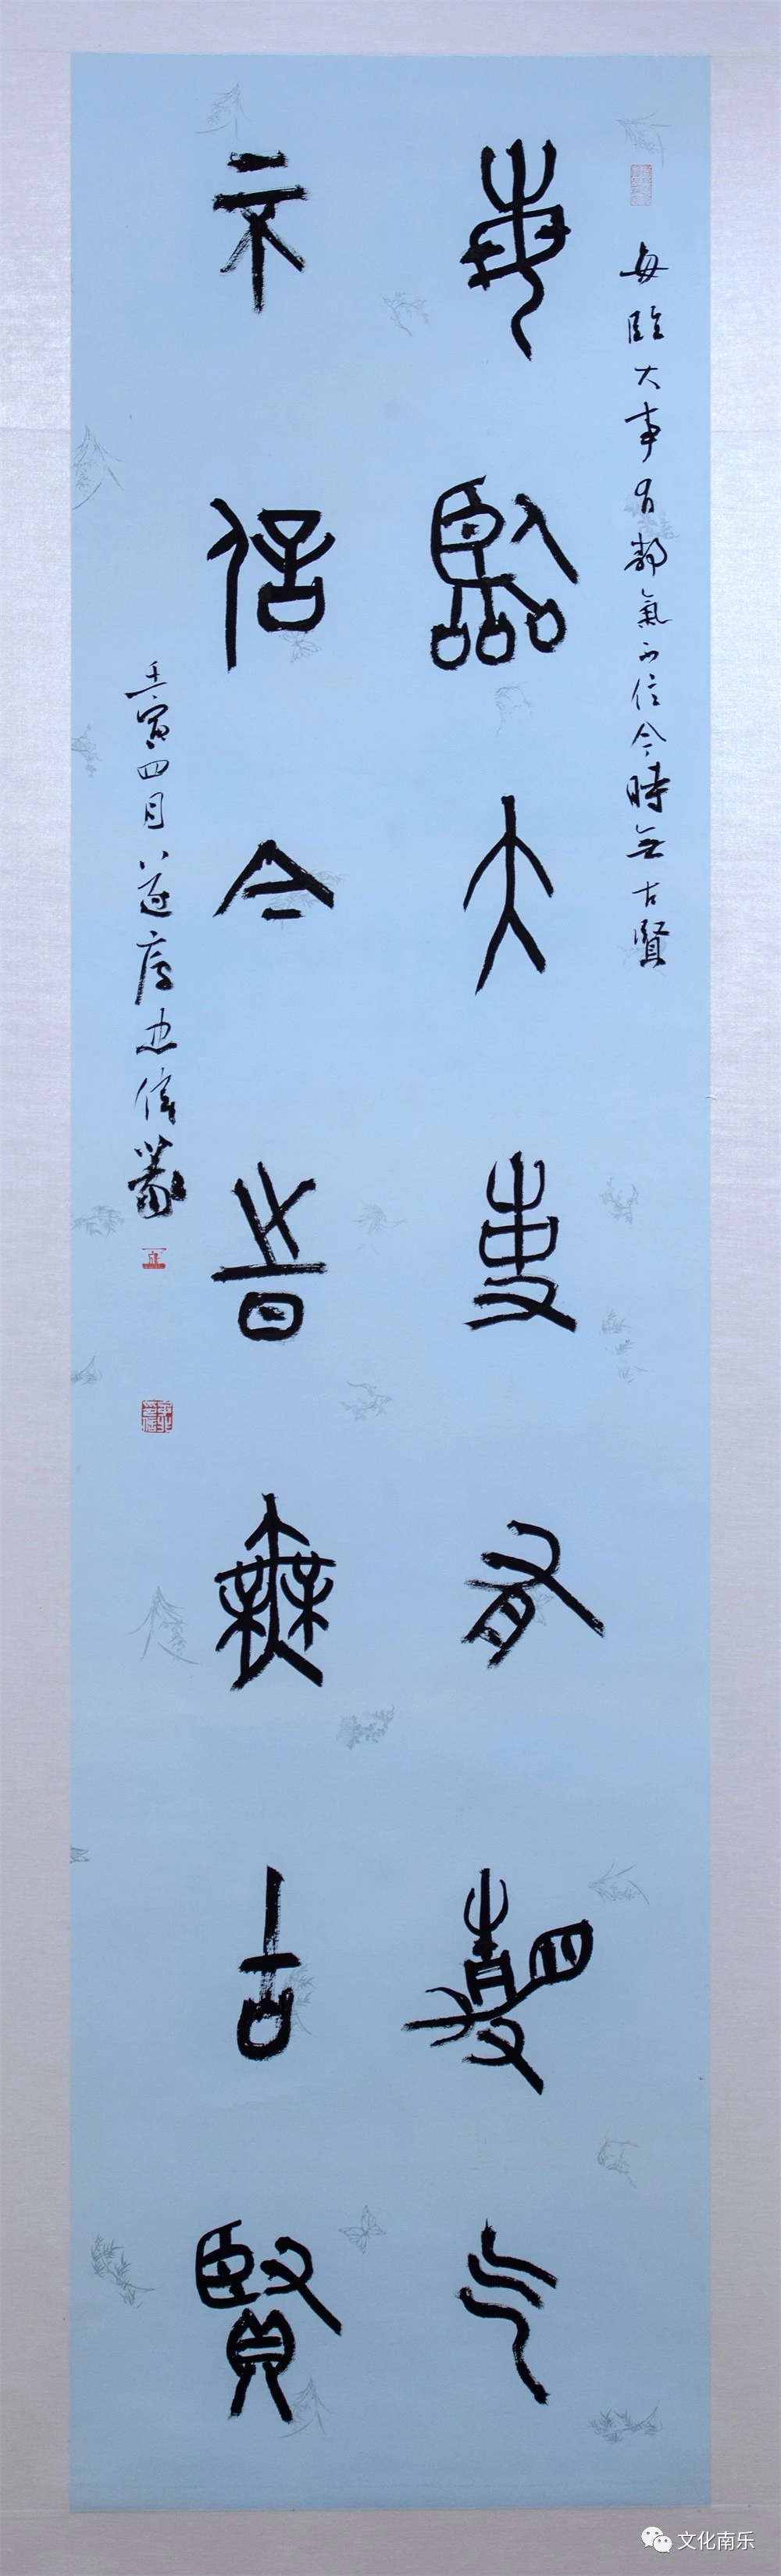 每臨大事有靜氣不信今時無古賢
每臨大事有靜气
不信今時無古賢
壬寅四月忠篆
文化南乐